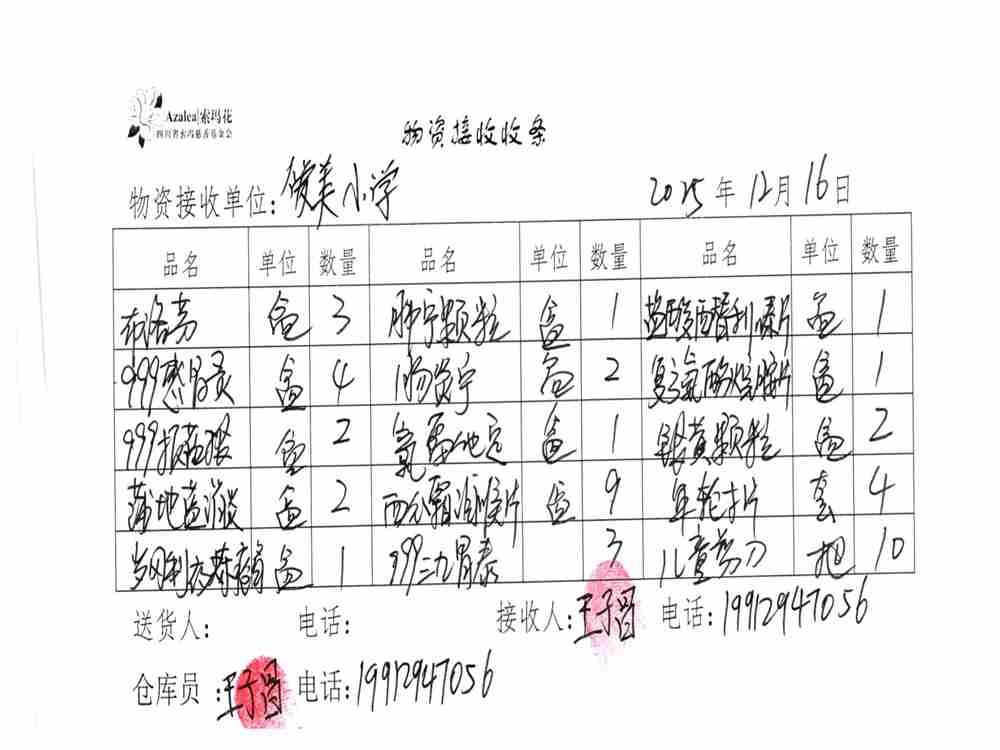 Azalea|索玛花
四川省索玛慈善基金会
物资接收收条
物资接收单位: 俊美小学 2025年12月16日
品名 单位 数量 品名 单位 数量 品名 单位 数量
布洛芬 盒 3 肺宁颗粒 盒 1 盐酸 片 盒 1
999感冒灵 盒 4 肠炎宁 盒 2 复方氨酚烷胺片 盒 1
999抗病毒 盒 2 氯雷他定 盒 1 银黄颗粒 盒 2
蒲地蓝消炎 盒 2 西瓜霜润喉片 盒 9 年轮卡片 套 4
盒 1 999三九胃泰 3 儿童剪刀 把 10
送货人: 电话: 接收人: 王子昌 电话: 19912947056
仓库员: 王子昌 电话: 19912947056